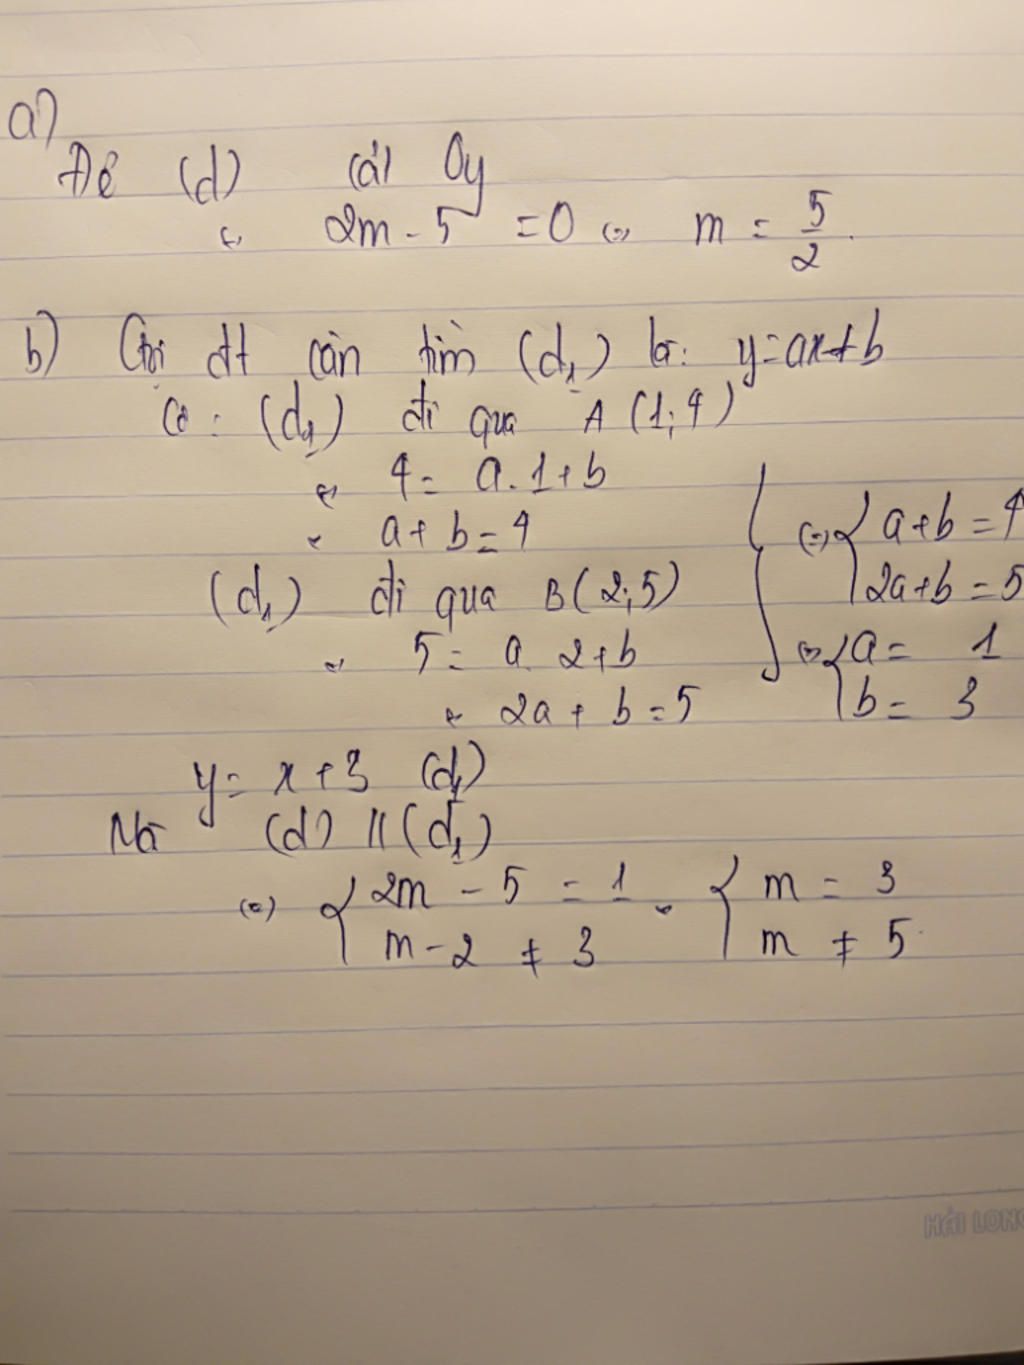 a)
Để (d) cắt Oy
2m - 5 = 0 <=> m = 5/2.
b) Gọi đt cần tìm (d₁) là: y = ax + b
Có: (d₁) đi qua A (1; 4)
<=> 4 = a. 1 + b
<=> a + b = 4
(d₁) đi qua B (2; 5)
<=> 5 = a. 2 + b
<=> 2a + b = 5
(=) { a + b = 4
2a + b = 5
(=) { a = 1
b = 3
y = x + 3 (d₁)
Mà (d) // (d₁)
(=) { 2m - 5 = 1 <=> { m = 3
m - 2 ≠ 3 m ≠ 5
HẢI LONG